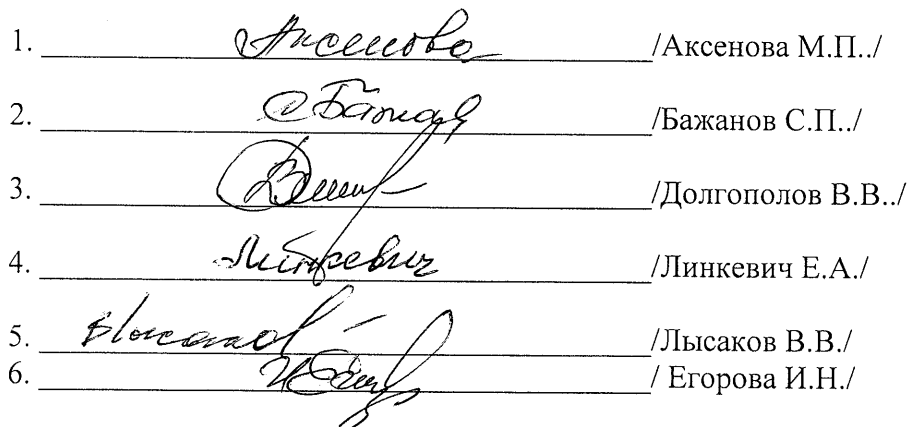 1. Аксенова /Аксенова М.П../
2. /Бажанов С.П../
3. /Долгополов В.В../
4. Линкевич /Линкевич Е.А./
5. /Лысаков В.В./
6. / Егорова И.Н./